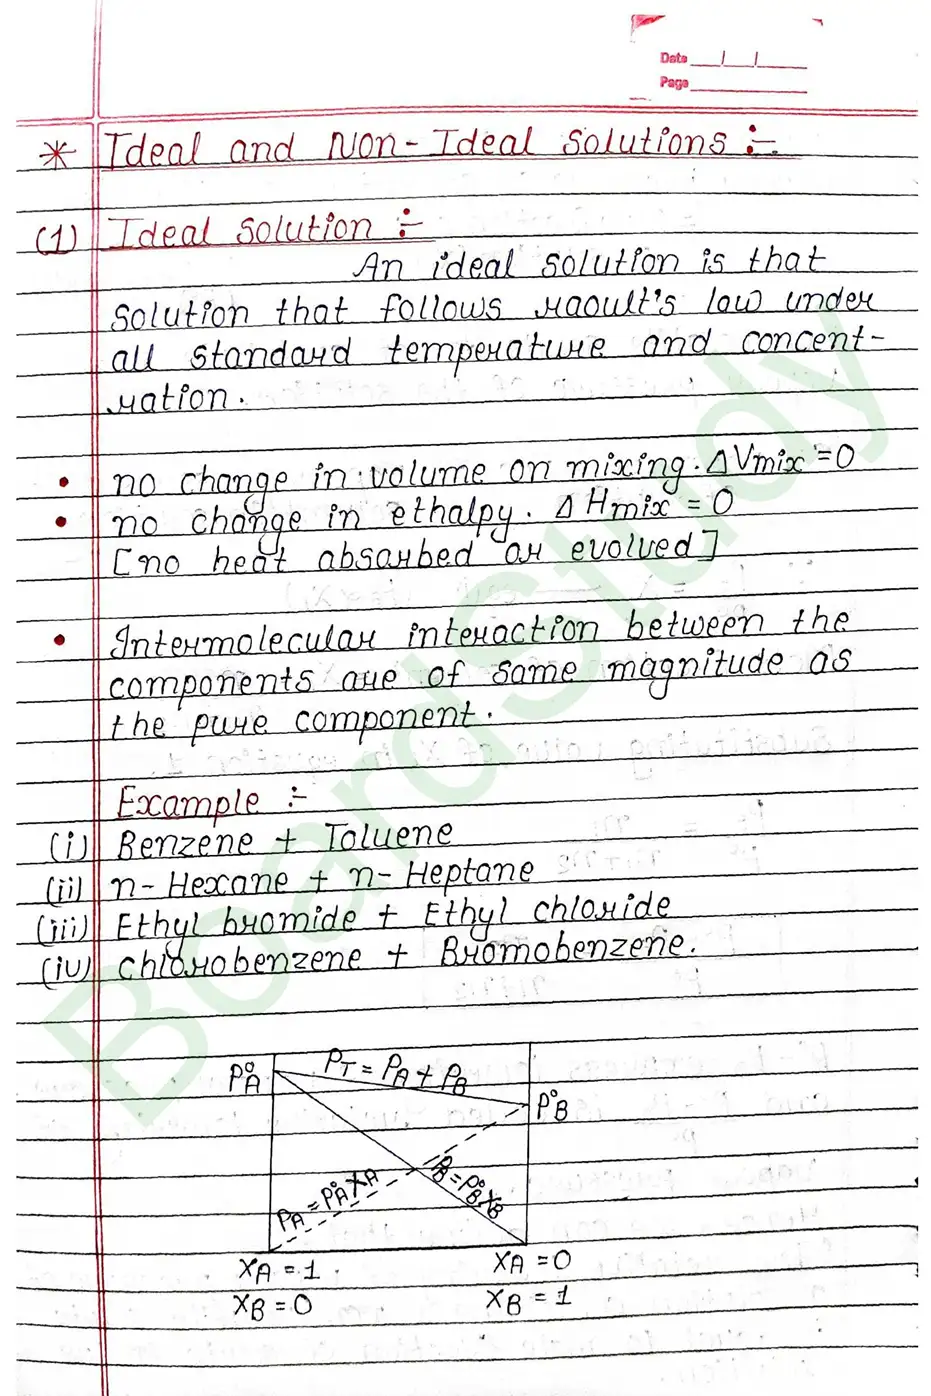 Date __/__/__
Page
* Ideal and Non-Ideal Solutions :-
(1) Ideal Solution :-
An ideal solution is that
solution that follows raoult's law under
all standard temperature and concent-
ration.
• no change in volume on mixing. ΔVmix = 0
• no change in ethalpy. ΔHmix = 0
[no heat absorbed or evolved]
• Intermolecular interaction between the
components are of same magnitude as
the pure component.
Example :-
(i) Benzene + Toluene
(ii) n-Hexane + n-Heptane
(iii) Ethyl bromide + Ethyl chloride
(iv) Chlorobenzene + Bromobenzene.
P°A
PT = PA + PB
P°B
PA = P°A XA
PB = P°B XB
XA = 1
XA = 0
XB = 0
XB = 1
BoardStudy